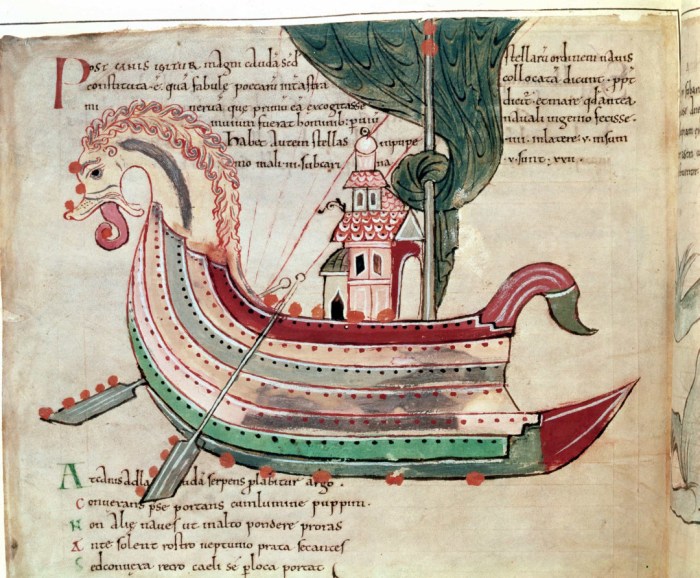 Post canis igitur magni caudā sed stellarū ordinem navis
constituta ē quā fabule poetarū int astra collocatā dicunt ppt
mi nerva que primū eā excogitasse dicit et mare qd antea
invium fuerat hominib; pvium navali ingenio fecisse
habet autem stellas in puppe .iiii. in latere .v. in sum
mo mali .iii. sub cari na .v. sunt .xxii.
At canis ad uda serpens plabitur argo
Conversans pse portans cum lumine puppim
Non alie naves ut in alto pondere proras
Ante solent rostro prata secantes
Sed conversa retro caeli se p loca portat